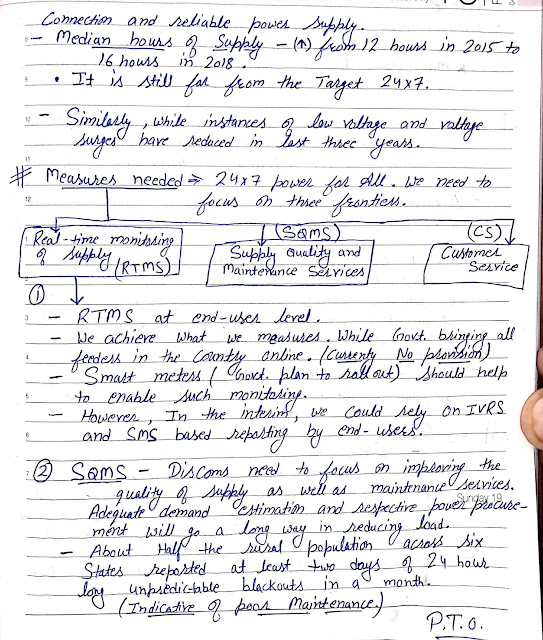 Connection and reliable power supply.
- Median hours of Supply - (↑) from 12 hours in 2015 to
16 hours in 2018.
• It is still far from the Target 24x7.
- Similarly, while instances of low voltage and voltage
surges have reduced in last three years.
# Measures needed ⇒ 24x7 power for All. We need to
focus on three frontiers.
Real-time monitoring
of supply (RTMS)
(SQMS)
Supply Quality and
Maintenance Services
(CS)
Customer
Service
①
- RTMS at end-user level.
- We achieve what we measures. While Govt. bringing all
feeders in the Country online. (Currenty No provision)
- Smart meters (Govt. plan to roll out) should help
to enable such monitoring.
- However, In the interim, we could rely on IVRS
and SMS based reporting by end-users.
② SQMS - DisComs need to focus on improving the
quality of supply as well as maintenance services.
Sunday 19
Adequate demand estimation and respective power procure-
ment will go a long way in reducing load.
- About Half the rural population across six
States reported at least two days of 24 hour
long unpredictable blackouts in a month.
(Indicative of poor Maintenance.)
P.T.O.